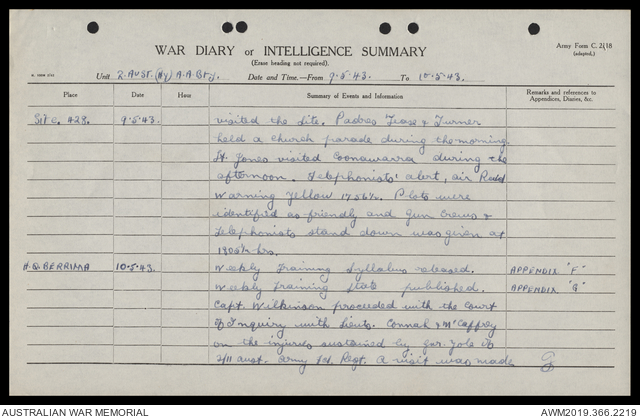 WAR DIARY or INTELLIGENCE SUMMARY
(Erase heading not required).
Army Form C. 2118
(adapted.)
Unit 2. AUST. (Hy) A.A. Bty. Date and Time.—From 9.5.43. To 10.5.43.
Place Date Hour Summary of Events and Information Remarks and references to Appendices, Diaries, &c.
Site. 428. 9.5.43. visited the site. Padres Trase & Turner
held a church parade during the morning.
Lt. Jones visited Coonawarra during the
afternoon. Telephonists' alert, air Raid
Warning yellow 1756 hrs. Plots were
identified as friendly and gun crews &
telephonists stand down was given at
1805 hrs.
H.Q BERRIMA 10.5.43. Weekly Training Syllabus released. APPENDIX "F"
Weekly Training state published. APPENDIX "G"
Capt. Wilkinson proceeded with the Court
of Inquiry with Lieuts. Connah & McCaffrey
on the injuries sustained by gnr. Yole of
2/11 aust. army fd. Regt. A visit was made
AUSTRALIAN WAR MEMORIAL AWM2019.366.2219